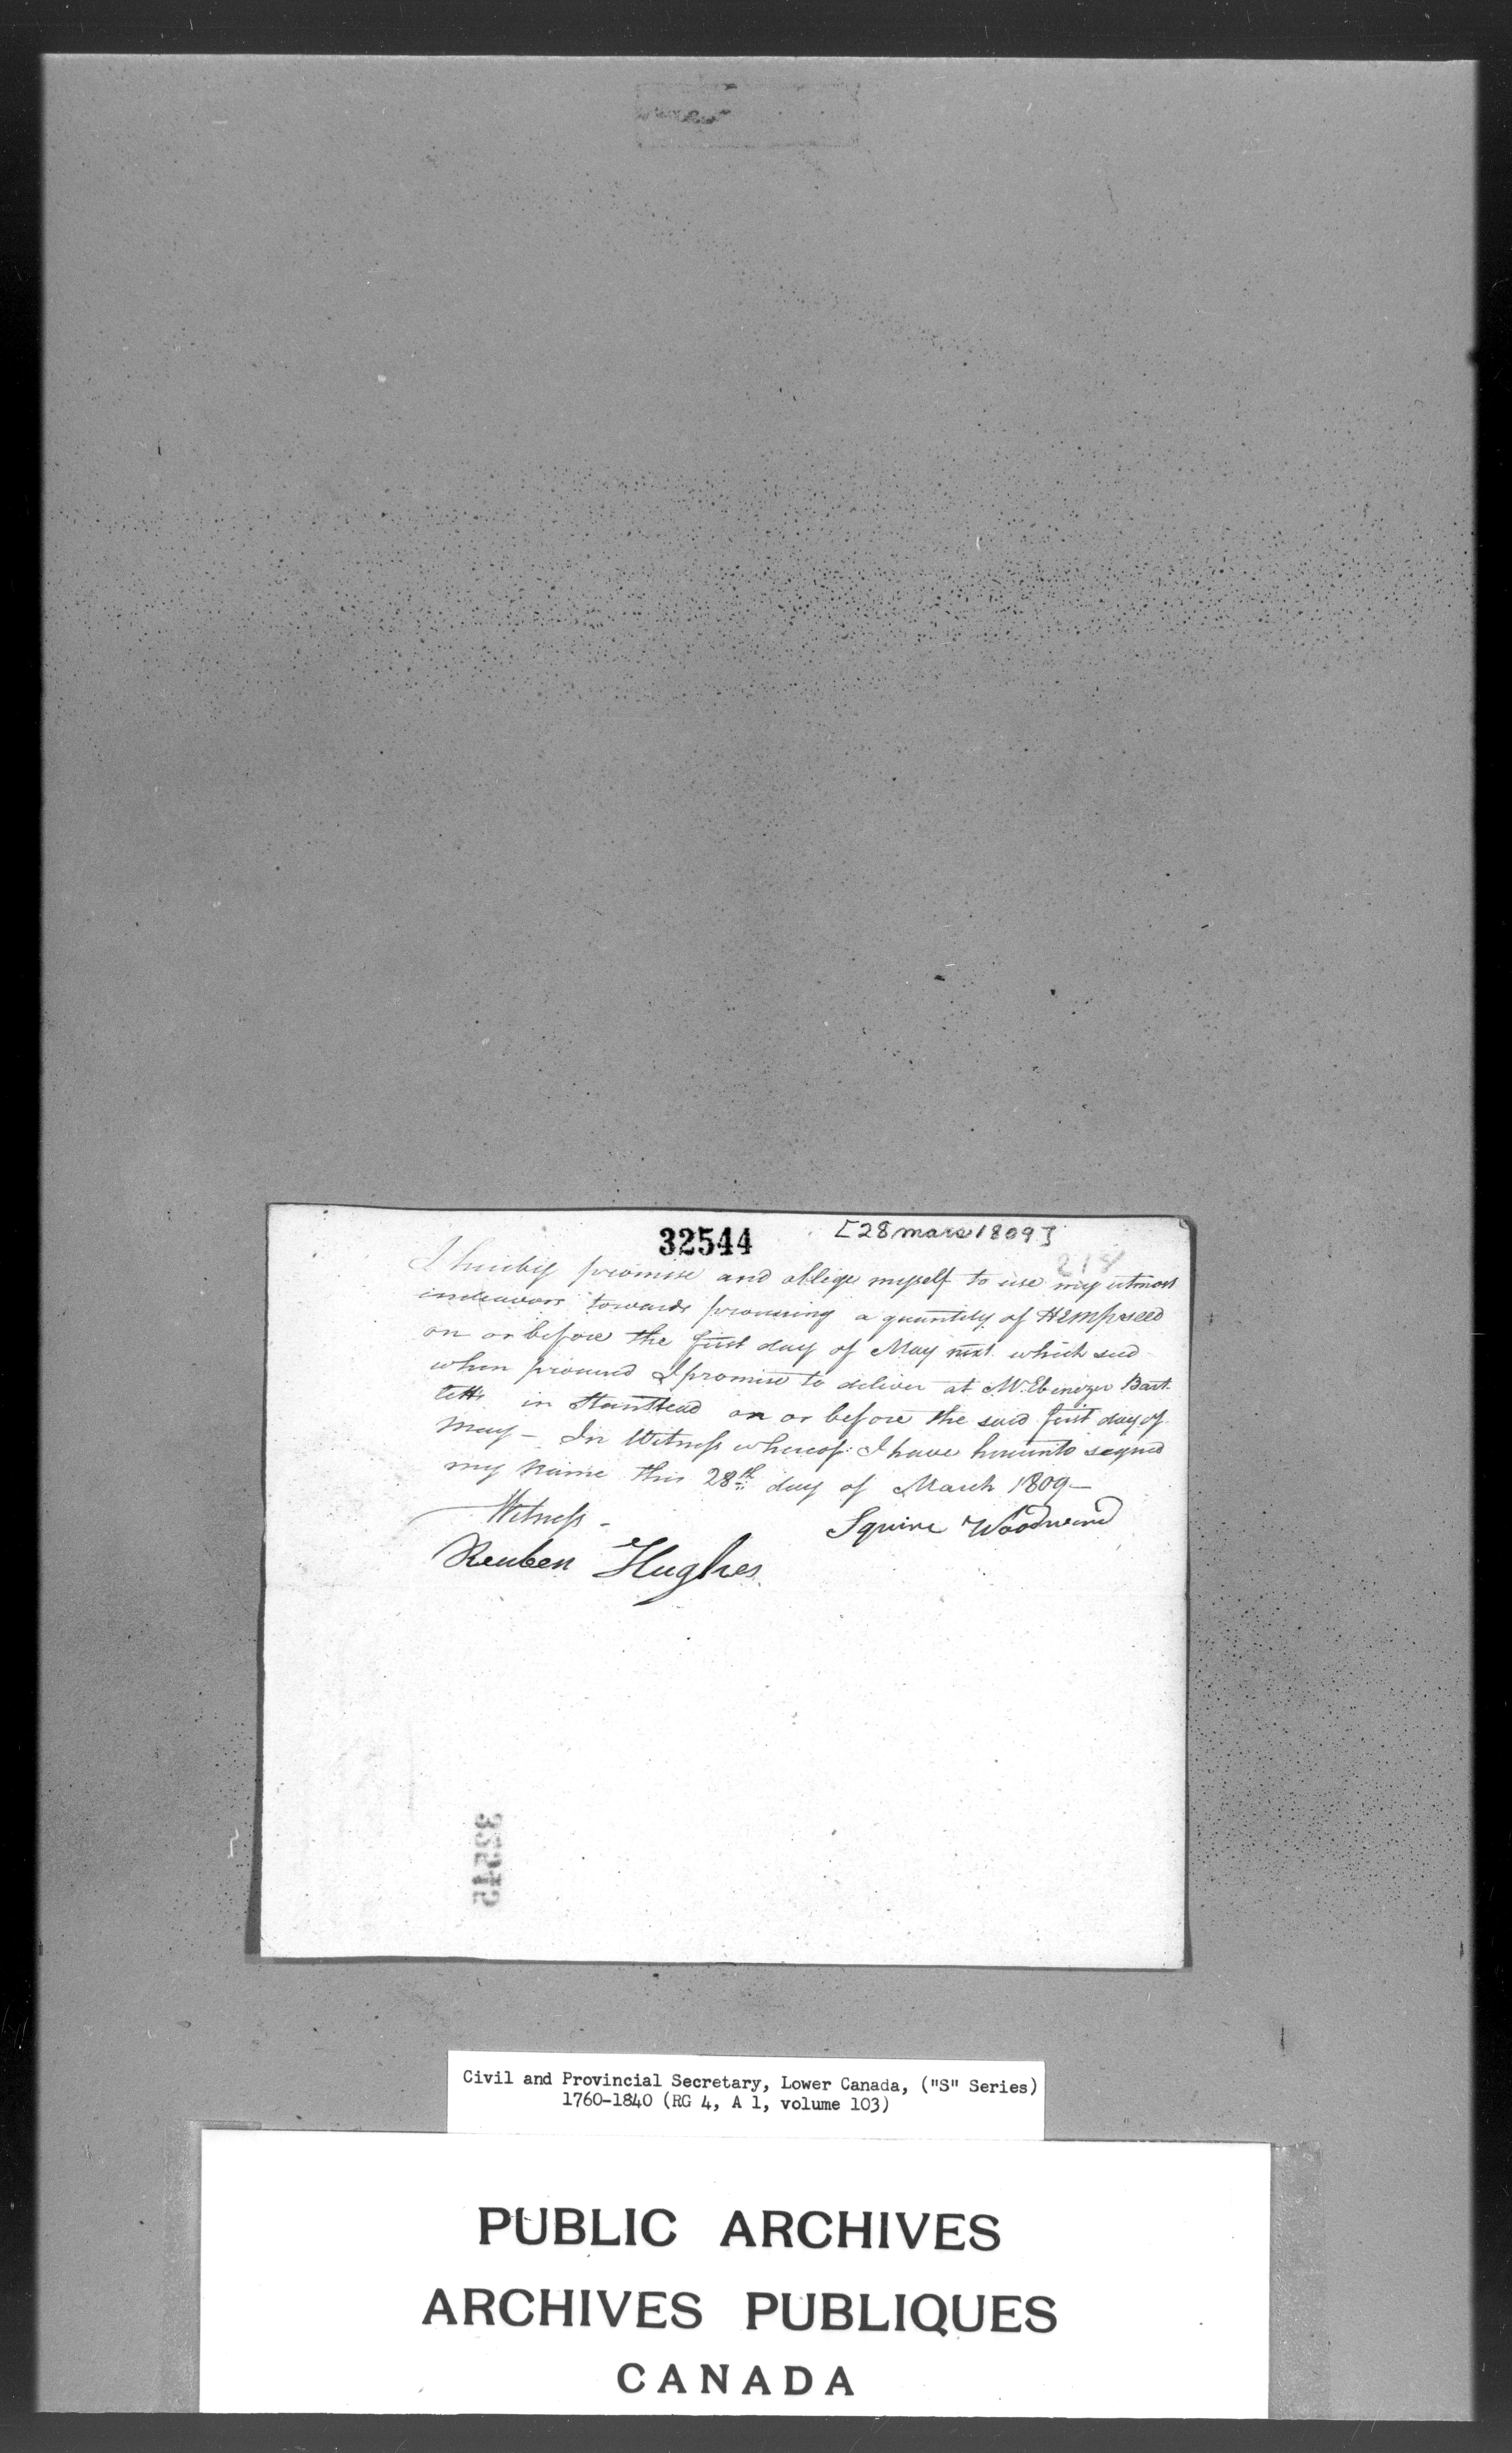 32544
[28 mars 1809]
218
I hereby promise and oblige myself to use my utmost
endeavors towards procuring a quantity of Hempseed
on or before the first day of May next which seed
when procured I promise to deliver at Mr. Ebenezer Bart-
letts in Stanstead on or before the said first day of
May – In Witness whereof I have hereunto signed
my name this 28th day of March 1809 –
Witness –
Squire Woodward
Reuben Hughes
32545
Civil and Provincial Secretary, Lower Canada, ("S" Series)
1760-1840 (RG 4, A 1, volume 103)
PUBLIC ARCHIVES
ARCHIVES PUBLIQUES
CANADA